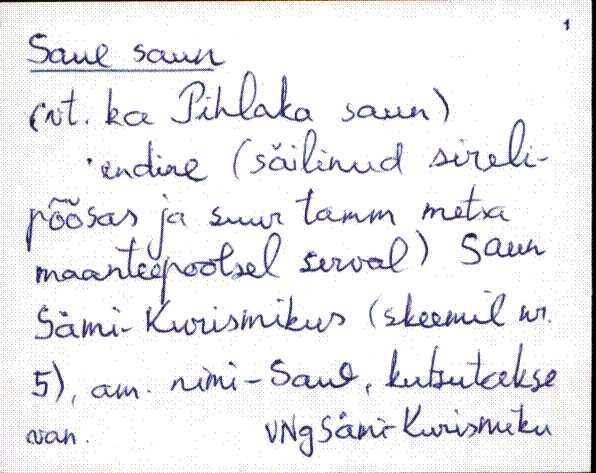 1
Saue saun
(vt. ka Pihlaka saun)
'endine (säilinud sireli-
põõsas ja suur tamm metsa
maanteepoolsel serval) saun
Sämi-Kurismikus (skeemil nr.
5), am. nimi - Saue, kutsutakse
van. VNg Sämi-Kurismiku